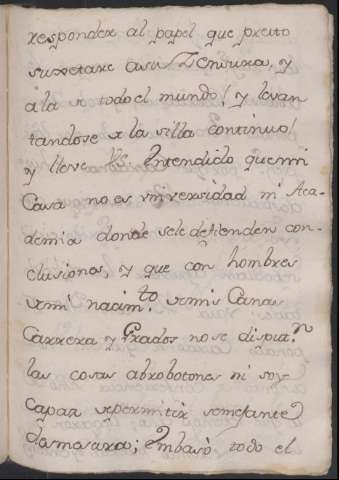 responder al papel que preito
suxetare asu Zensura, y
a la de todo el mundo! y levan
tandose de la silla continuo!
y lleve VS. Entendido que mi
Casa no es universidad ni Aca-
demia donde sele defienden con-
clusiones, y que con hombres
de mi nacim.to de mis Canas
Carrera y Grados no se disputa.n
las cosas abrobotones ni soy
Capaz de permitir semejante
damasara; Embasò todo el